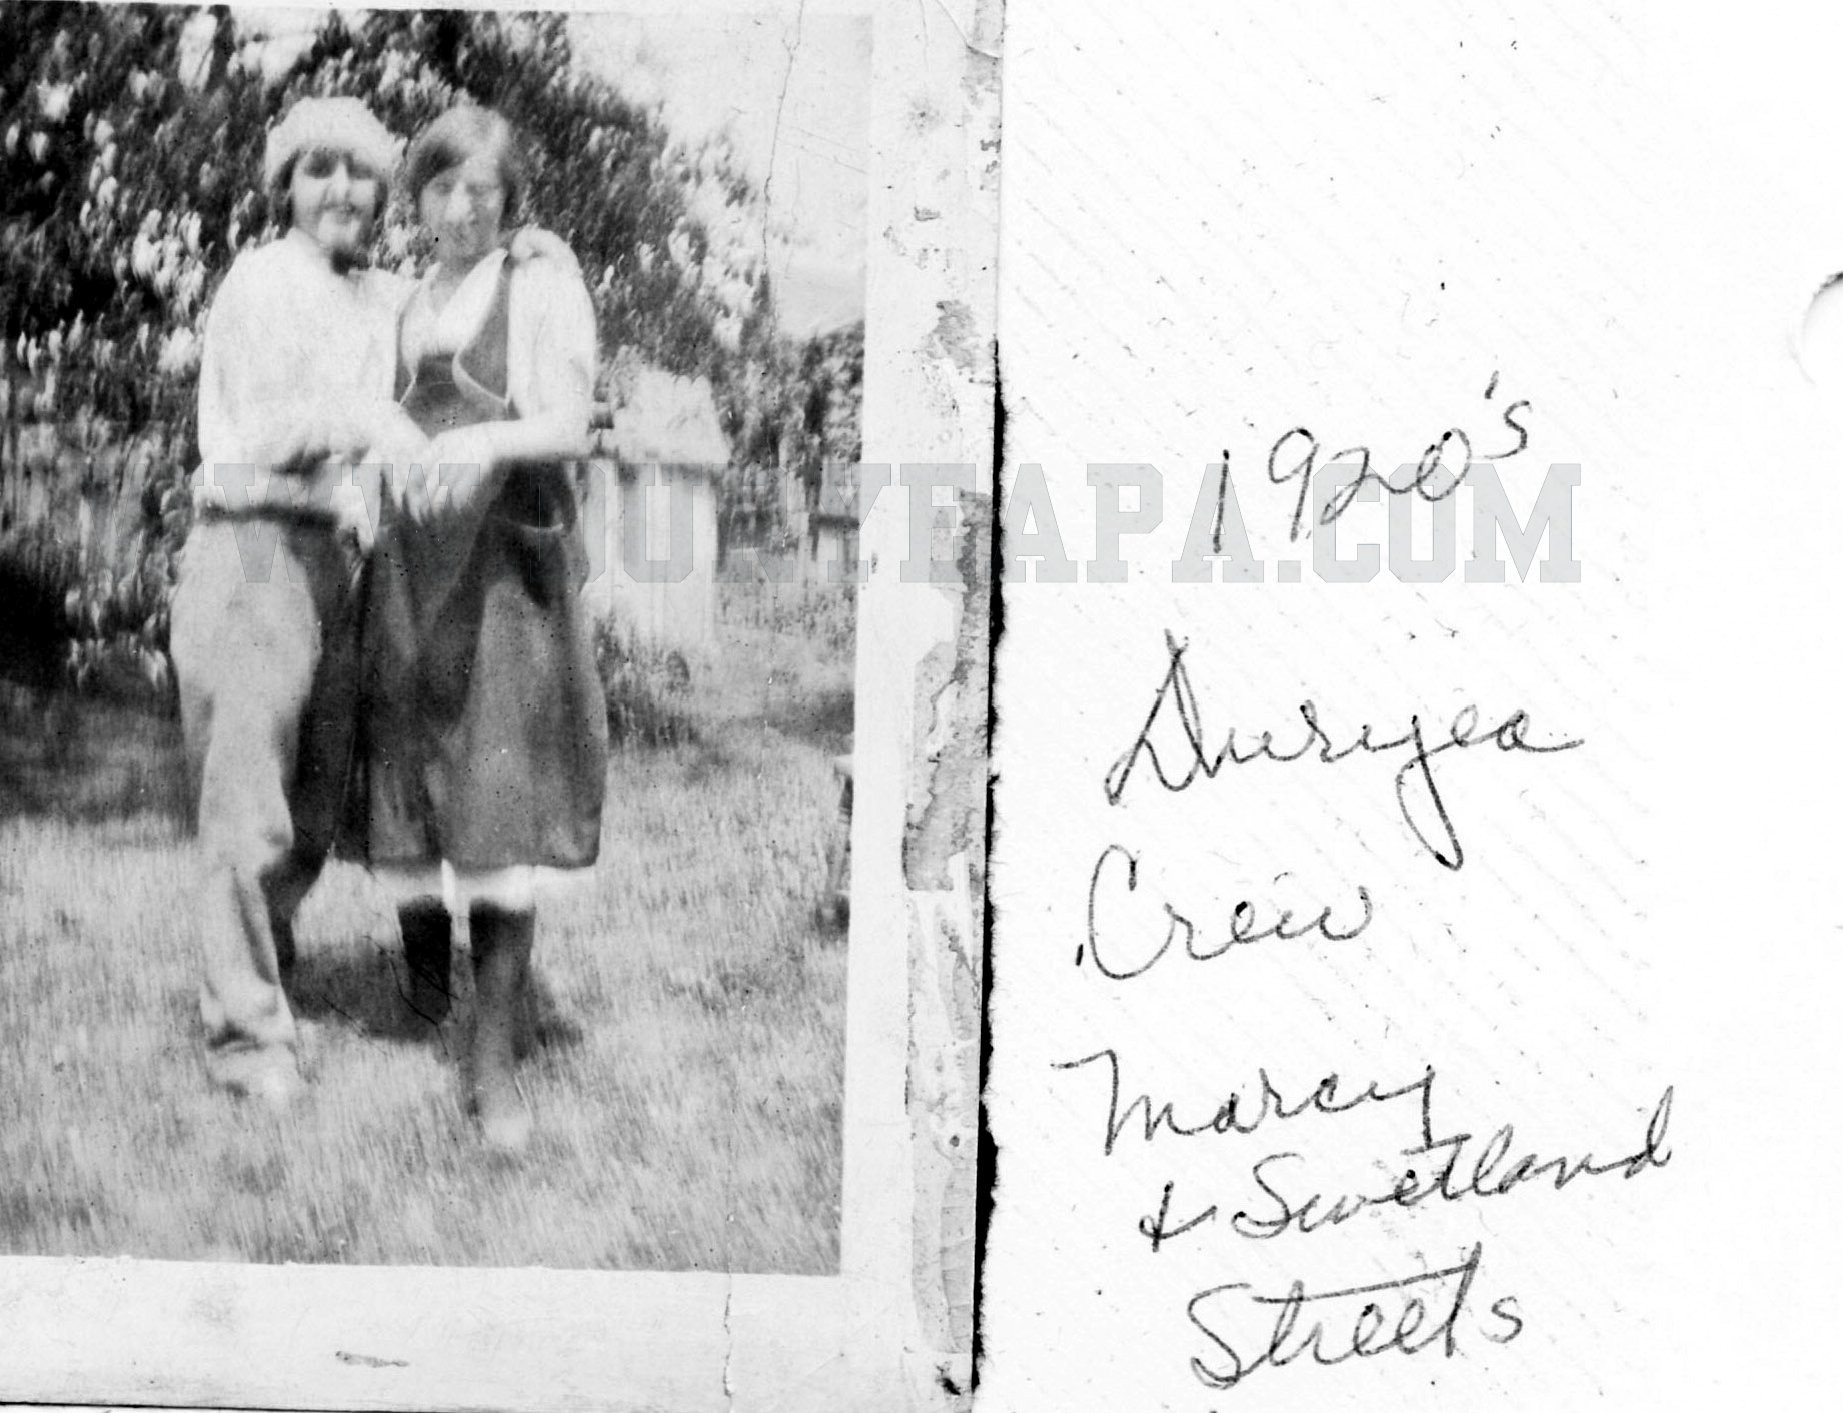 1920's
WWW.DURYEAPA.COM
Duryea
Crew
Marcy
& Swetland
Streets